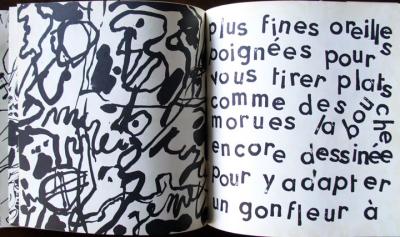 plus fines oreilles
poignées pour
vous tirer plats
comme des
morues la bouche
encore dessinée
pour y adapter
un gonfleur à